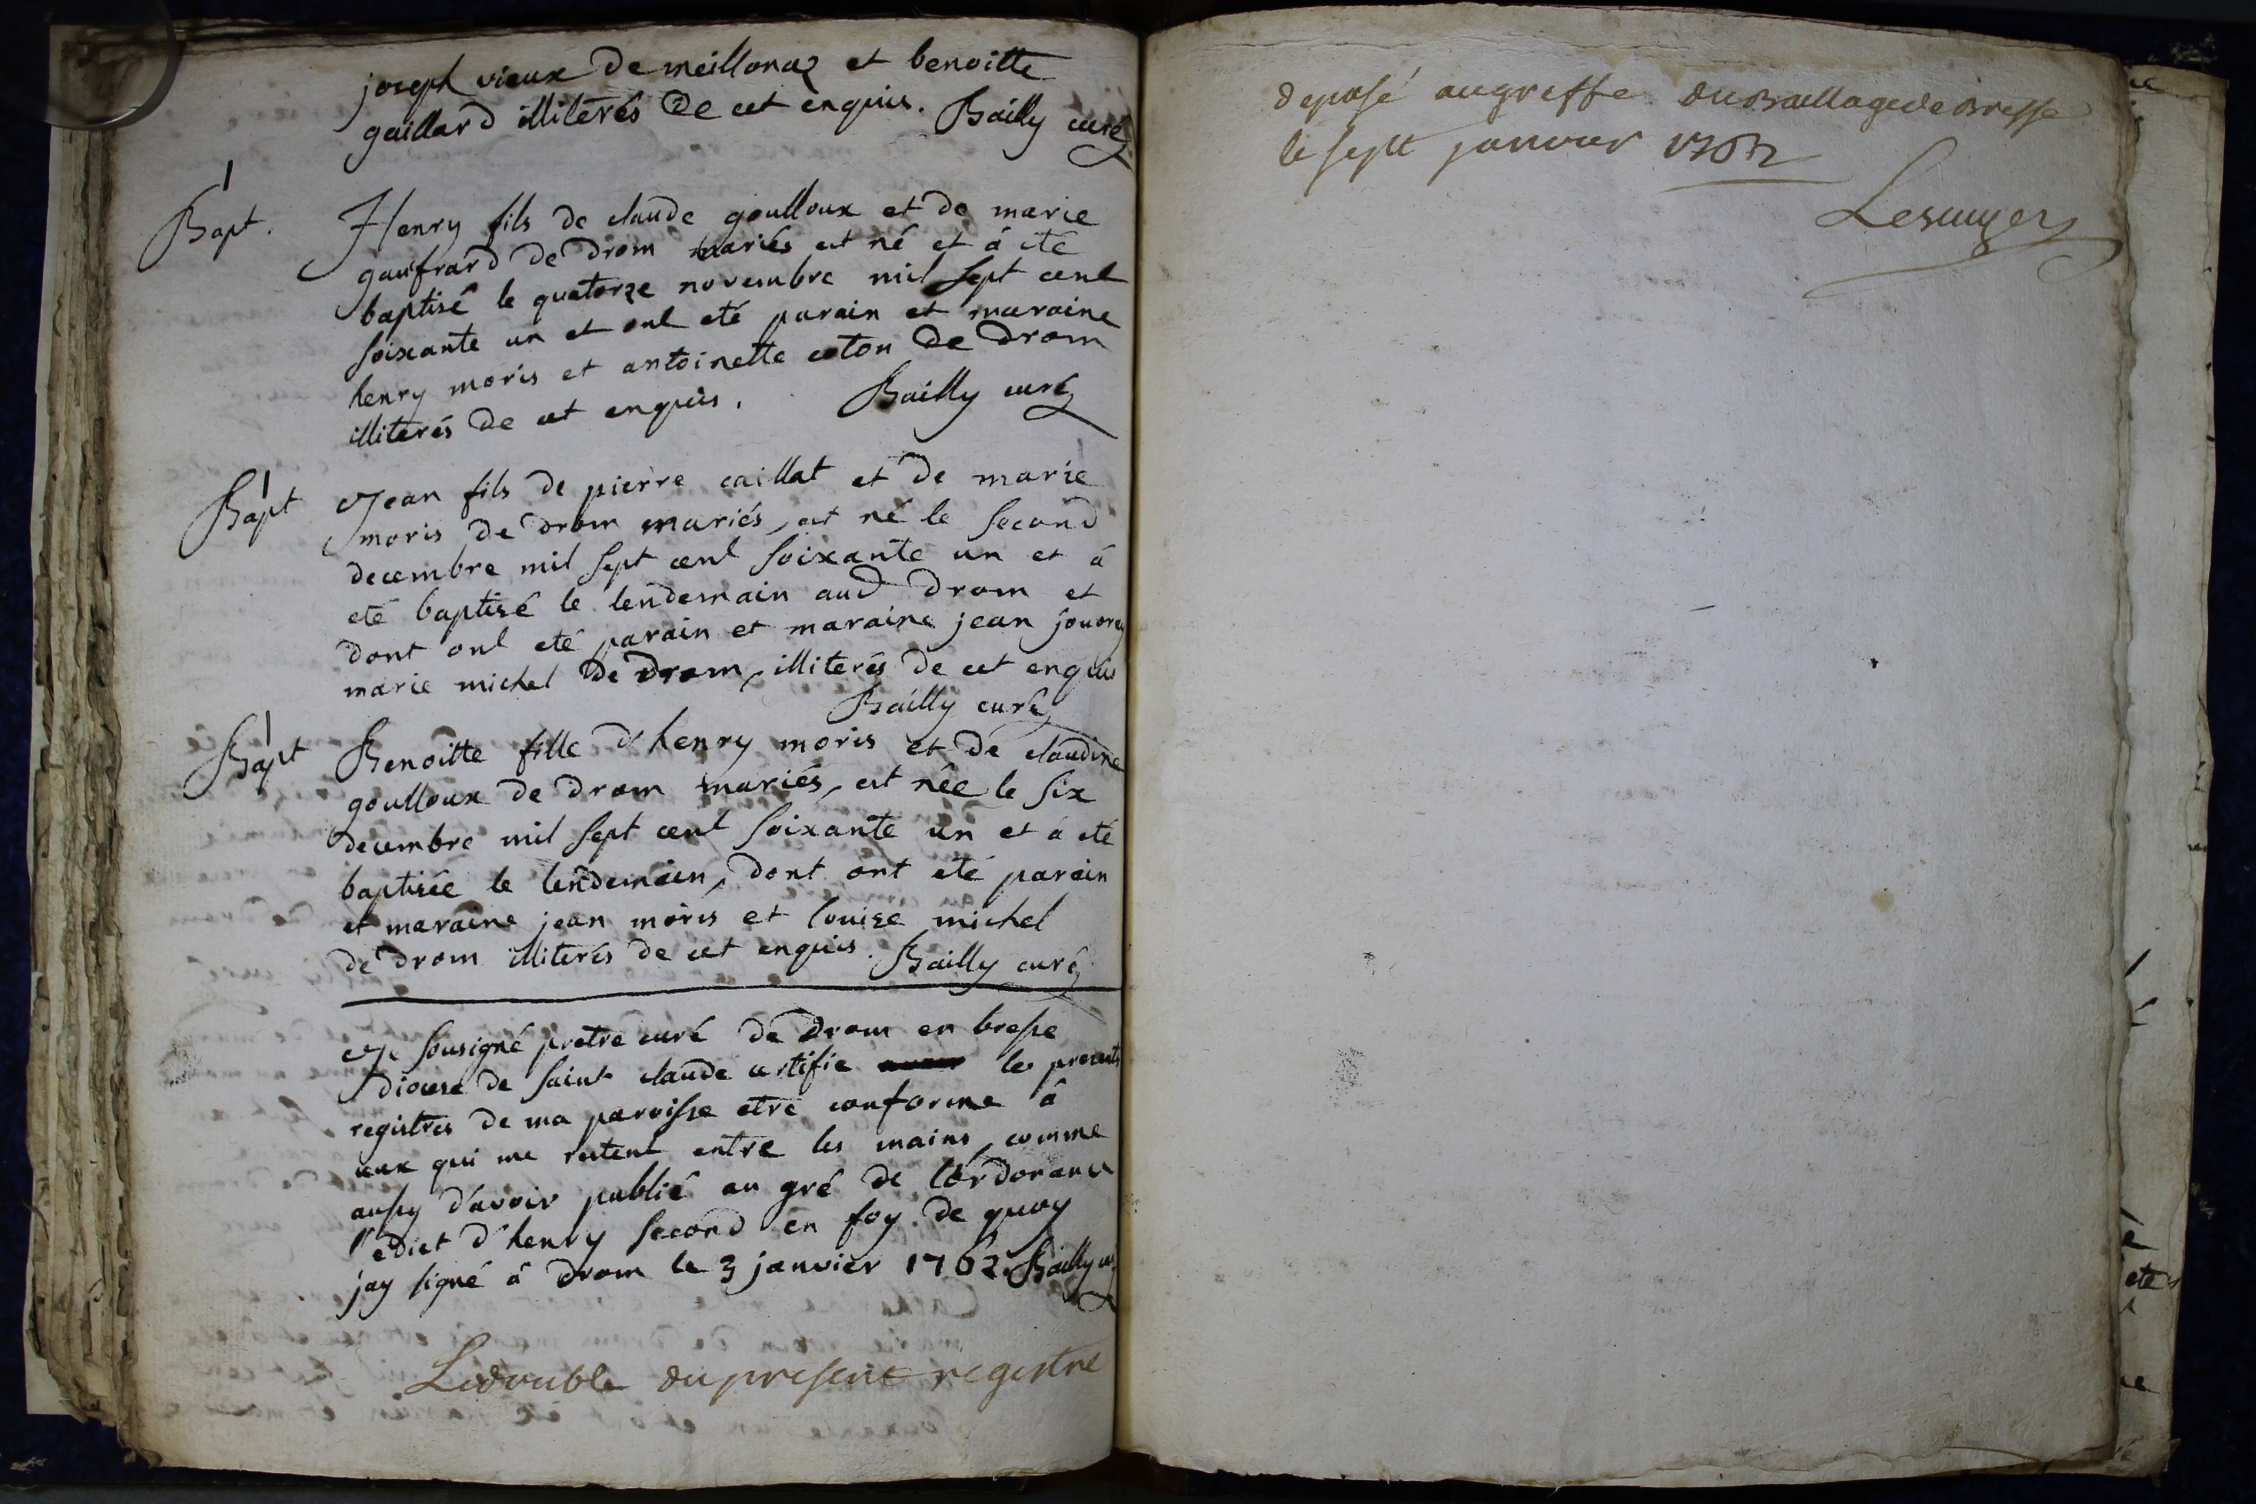 joseph vieux de meillonaz et benoitte
gaillard illiterés de cet enquis. Bailly curé
1
Bapt.
Henry fils de claude goulloux et de marie
gaufrard de drom mariés est né et á eté
baptisé le quatorze novembre mil sept cent
soixante un et ont eté parain et maraine
henry moris et antoinette coton de drom
illiterés de cet enquis. Bailly curé
1
Bapt
Jean fils de pierre caillat et de marie
moris de drom mariés, est né le second
decembre mil sept cent soixante un et á
eté baptisé le lendemain aud drom et
dont ont eté parain et maraine jean
marie michel de drom, illiterés de cet enquis
Bailly curé
1
Bapt
Benoitte fille d'henry moris et de claudine
goulloux de drom mariés, est née le six
decembre mil sept cent soixante un et á eté
baptisée le lendemain, dont ont eté parain
et maraine jean moris et louise michel
de drom illiterés de cet enquis. Bailly curé
Je sousigné pretre curé de drom en bresse
diocese de saint claude certifie les presents
registres de ma paroisse etre conforme á
ceux qui me restent entre les mains, comme
aussy d'avoir publié au gré de l'ordonance
l'edict d'henry second en foy de quoy
jay signé á drom le 3 janvier 1762. Bailly c.
Le double du present registre
deposé au greffe du Baillage de Bresse
le sept janvier 1762